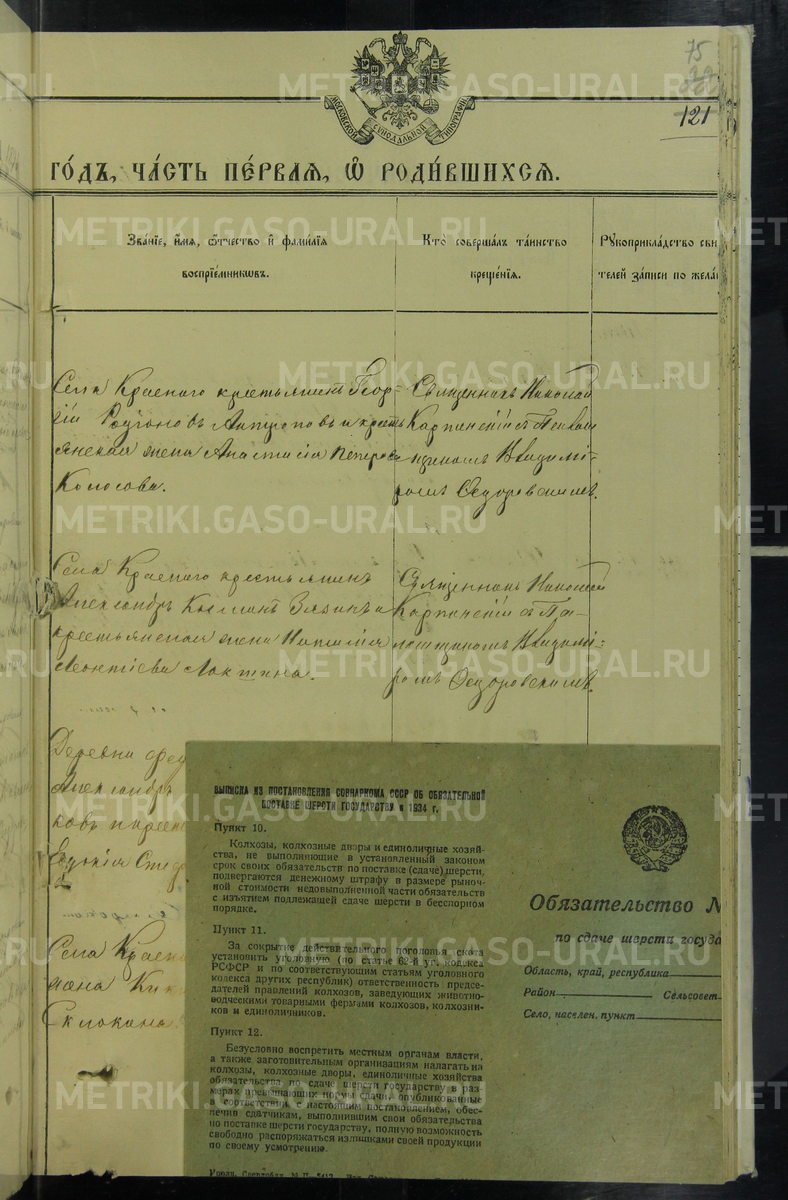 75
121
МОСКОВСКОЙ СѴНОДАЛЬНОЙ ТИПОГРАФІИ
ГО́ДЪ, ЧА́СТЬ ПЕ́РВАѦ, Ѡ҆ РОДИ́ВШИХСѦ.
Зва́нїе, и҆́мѧ, ѻ҆́тчество и҆ фами́лїѧ
воспрїе́мникѡвъ.
Кто̀ соверша́лъ та́инство
креще́нїѧ.
Рꙋкоприкла́дство сви
телей за́писи по жела
Села Краснаго крестьянинъ Геор=
гій Родіоновъ Антроповъ и кресть
янская жена Анастасія Петрова
Колосова.
Священникъ Николай
Карпинскій съ
Владимі-
ромъ Ѳедоровскимъ.
Села Краснаго крестьянинъ
Александръ Козминъ и
крестьянская жена Наталія
Леонтіева Локтина.
Священникъ Николай
Карпинскій съ Пса-
ломщикомъ Владимі-
ромъ Ѳедоровскимъ.
Деревни
Александръ
ковъ
Евдокія
Села Красн
жена
ВЫПИСКА ИЗ ПОСТАНОВЛЕНИЯ СОВНАРКОМА СССР ОБ ОБЯЗАТЕЛЬНОЙ
ПОСТАВКЕ ШЕРСТИ ГОСУДАРСТВУ в 1934 г.
Пункт 10.
Колхозы, колхозные дворы и единоличные хозяй-
ства, не выполняющие в установленный законом
срок своих обязательств по поставке (сдаче) шерсти,
подвергаются денежному штрафу в размере рыноч-
ной стоимости недовыполненной части обязательств
с изъятием подлежащей сдаче шерсти в бесспорном
порядке.
Пункт 11.
За сокрытие действительного поголовья скота
установить уголовную (по статье 62-й уг. кодекса
РСФСР и по соответствующим статьям уголовного
кодекса других республик) ответственность предсе-
дателей правлений колхозов, заведующих животно-
водческими товарными фермами колхозов, колхозни-
ков и единоличников.
Пункт 12.
Безусловно воспретить местным органам власти,
а также заготовительным организациям налагать на
колхозы, колхозные дворы, единоличные хозяйства
обязательства по сдаче шерсти государству в раз-
мерах превышающих нормы сдачи, опубликованные
в соответствии с настоящим постановлением, обес-
печив сдатчикам, выполнившим свои обязательства
по поставке шерсти государству, полную возможность
свободно распоряжаться излишками своей продукции
по своему усмотрению.
Обязательство №
по сдаче шерсти госуда
Область, край, республика
Район Сельсовет
Село, населен. пункт
METRIKI.GASO-URAL.RU